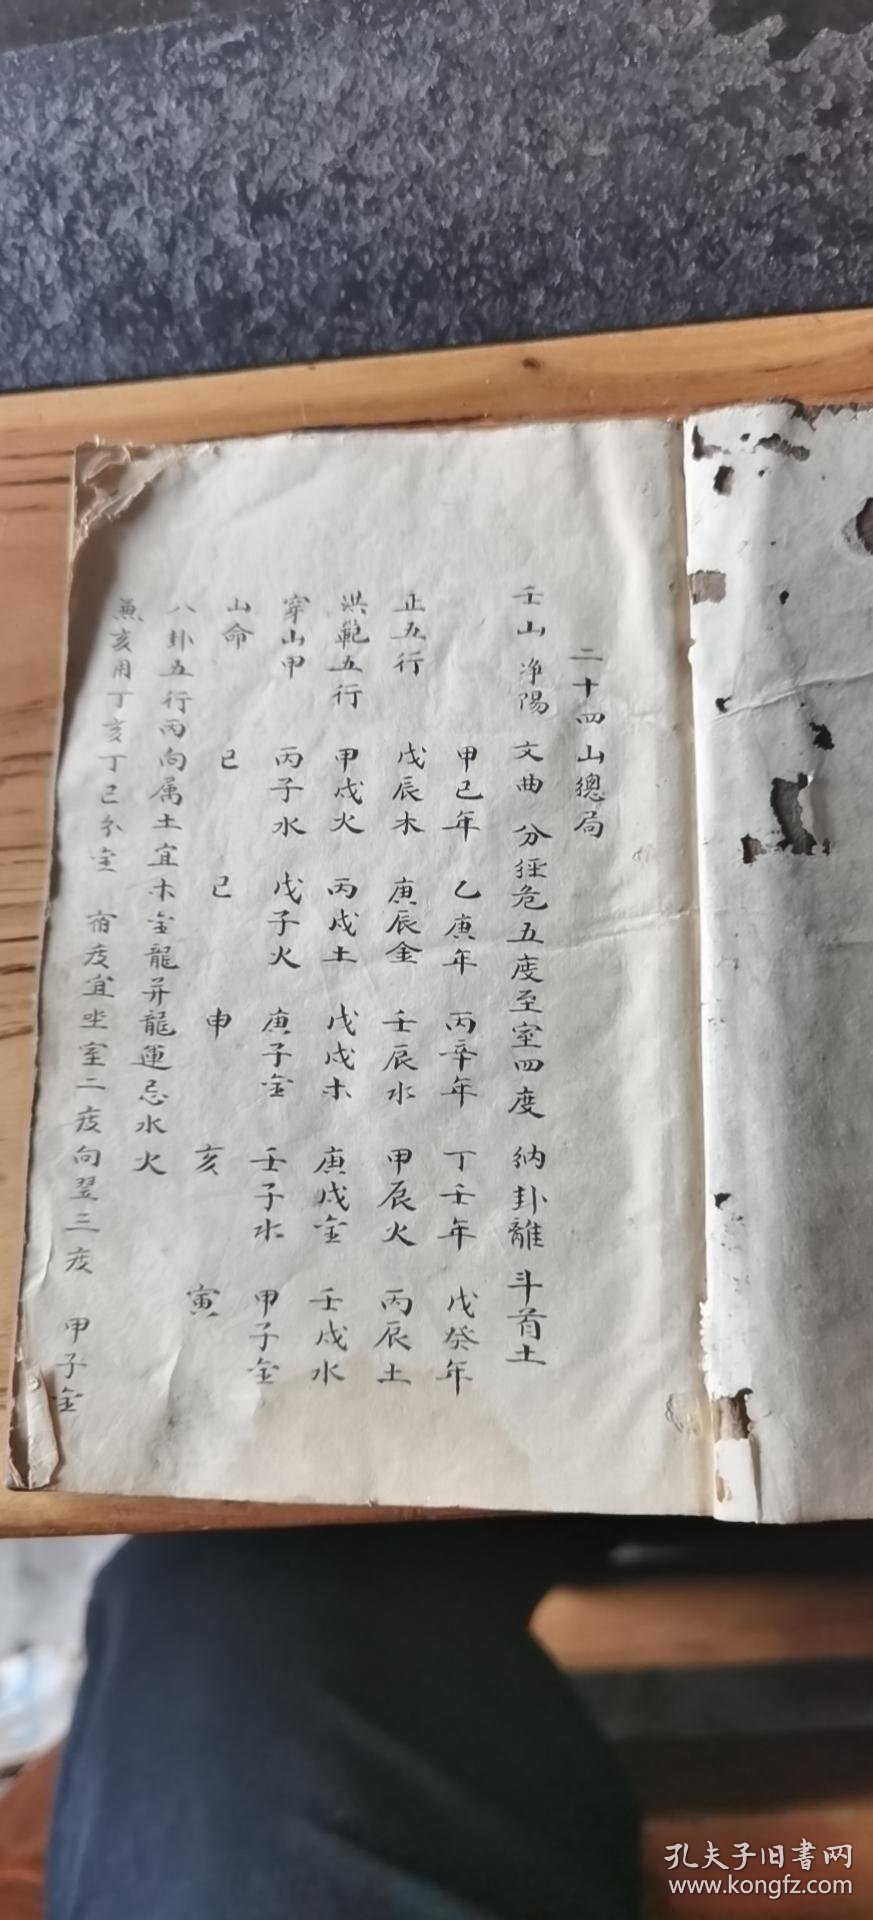 二十四山總局
壬山 净陽 文曲 分経危五度至室四度 納卦離 斗首土
甲己年 乙庚年 丙辛年 丁壬年 戊癸年
正五行 戊辰木 庚辰金 壬辰水 甲辰火 丙辰土
洪範五行 甲戌火 丙戌土 戊戌木 庚戌金 壬戌水
穿山甲 丙子水 戊子火 庚子金 壬子水 甲子金
山命 巳 巳 申 亥 寅
八卦五行丙向属土宜木金龍并龍運忌水火
兼亥用丁亥丁巳分金 宿度宜坐室二度向翌三度 甲子金
孔夫子旧書网
www.kongfz.com